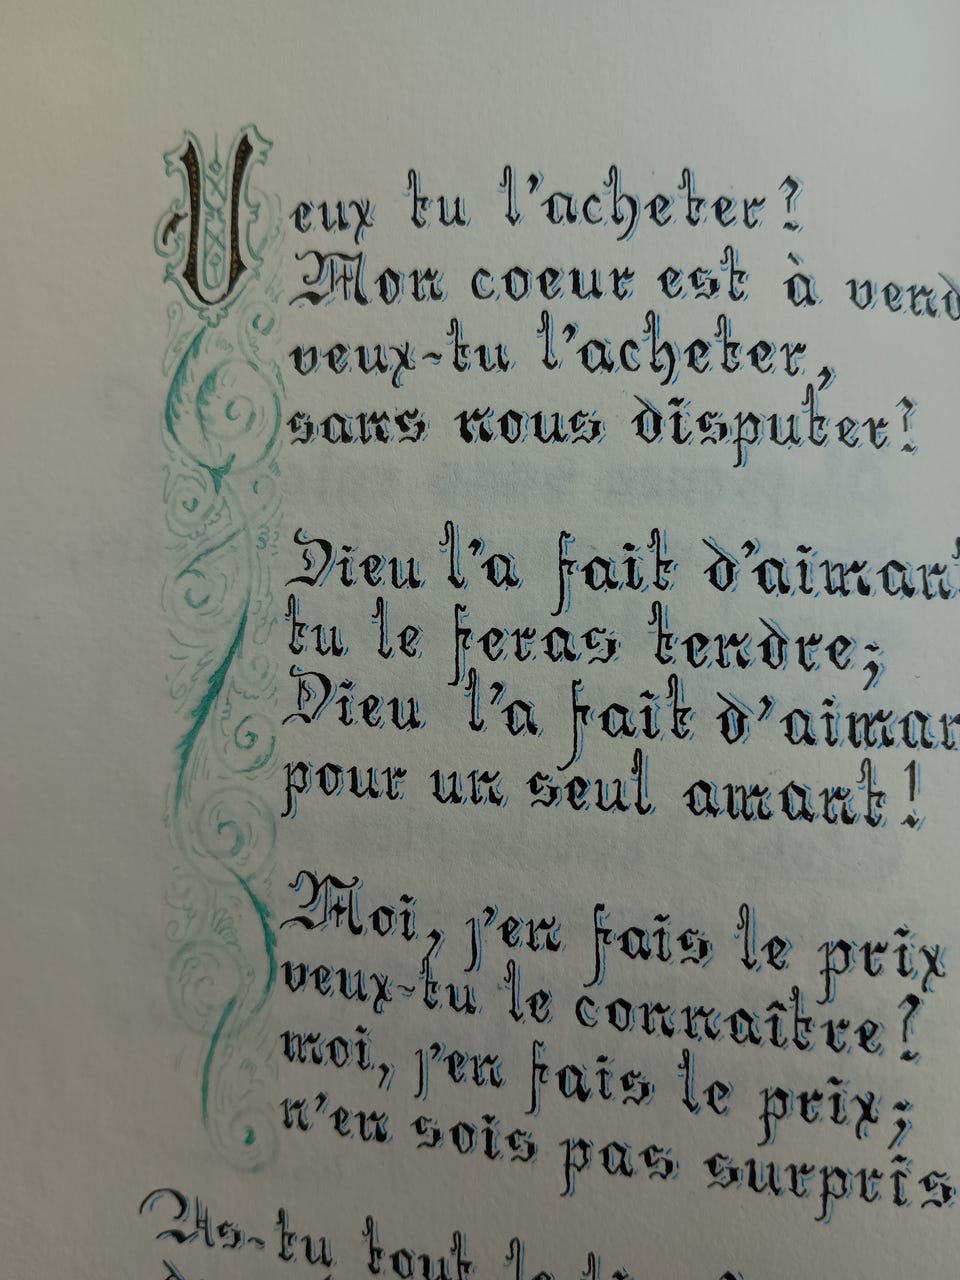 Veux tu l'acheter?
Mon coeur est à vend
veux-tu l'acheter,
sans nous disputer?
Dieu l'a fait d'aimant
tu le feras tendre;
Dieu l'a fait d'aiman
pour un seul amant!
Moi, j'en fais le prix
veux-tu le connaître?
moi, j'en fais le prix;
n'en sois pas surpris
As-tu tout le